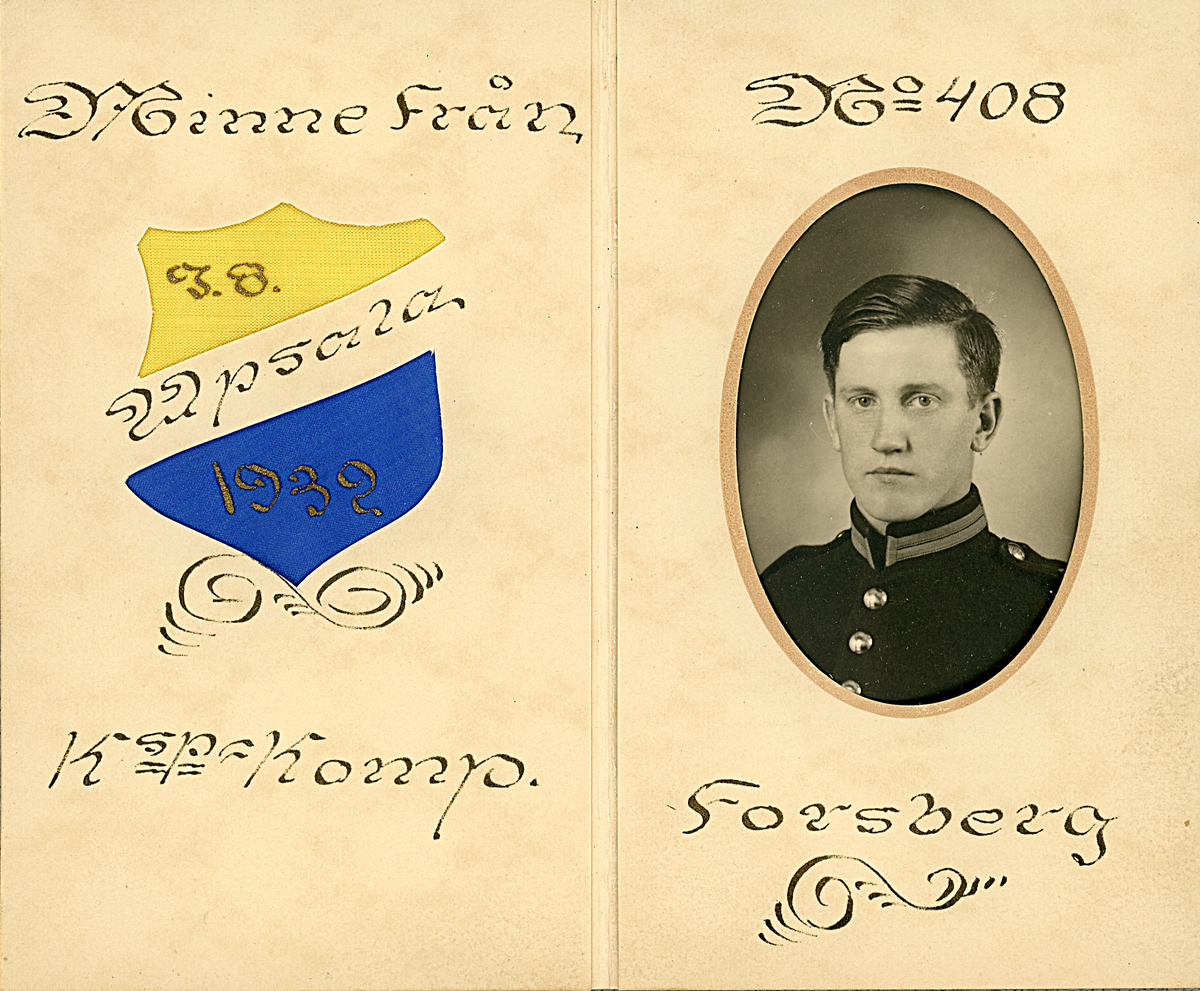 Minne Från
I.8.
Upsala
1932
Ksp-Komp.
No 408
Forsberg